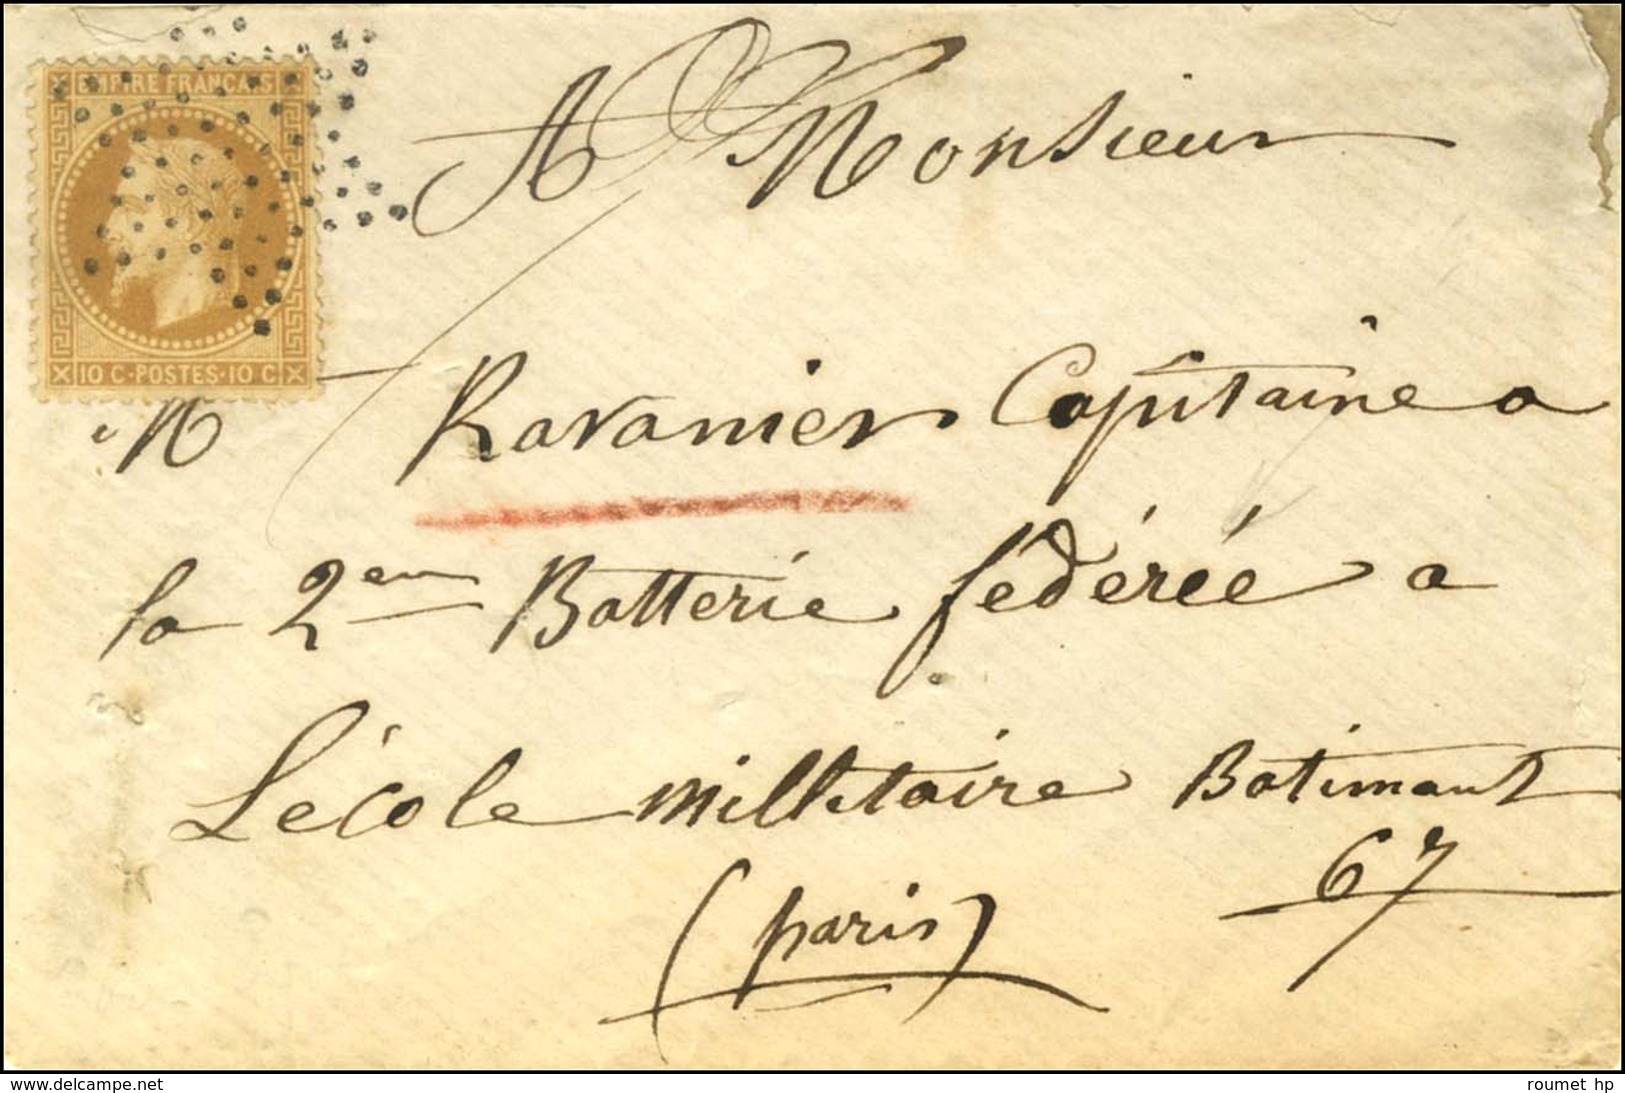 EMPIRE FRANÇAIS
10 C·POSTES·10 C
A Monsieur
M Ravanier Capitaine a
la 2em Batterie fédérée a
L'école millitaire Batimant
67
(paris)
www.delcampe.net
roumet hp